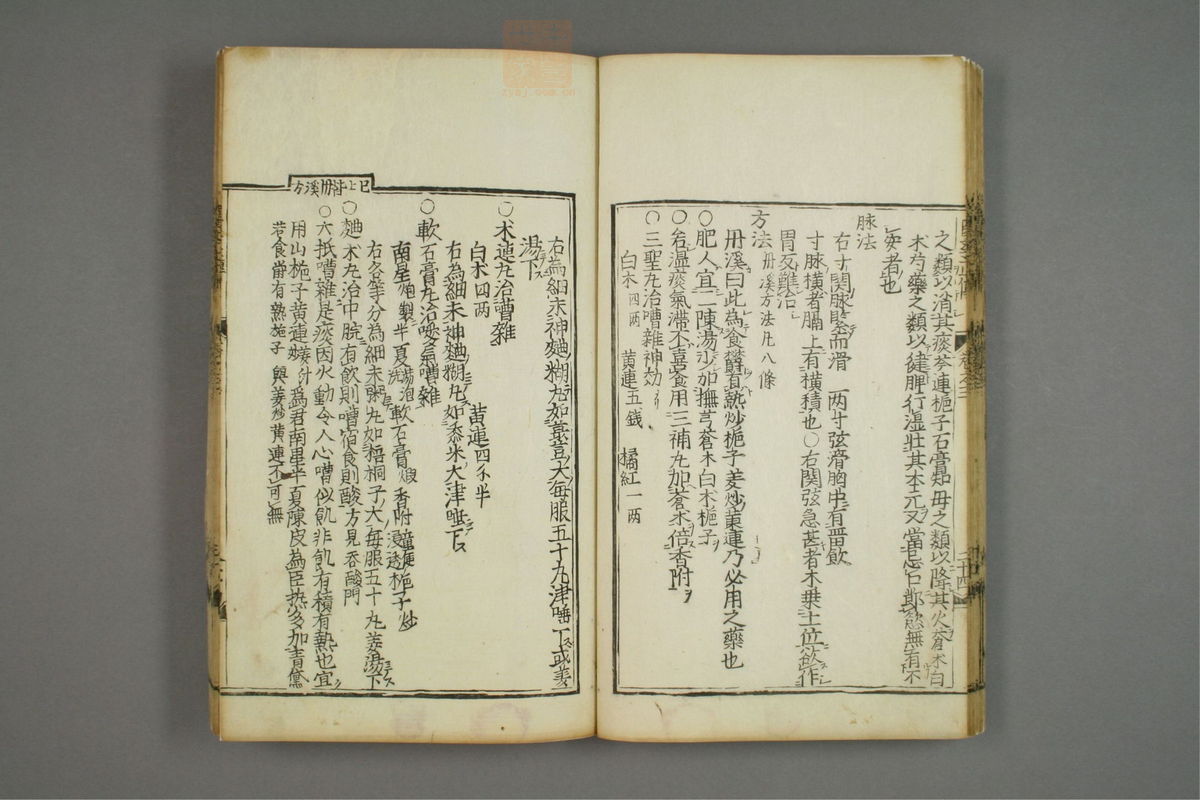 之類以消其痰芩連梔子石膏知母之類以降其火蒼朮白
朮芍藥之類以健脾行湿壯其本元又當忌口節慾無有不
安者也
脉法
右寸関脉緊而滑　两寸弦滑胸中有畱飲
寸脉橫者膈上有橫積也〇右関弦急甚者木乗土位欲作
胃反難治
方法 丹溪方法凡八條
丹溪曰此為食欝有熱炒梔子姜炒黄連乃必用之藥也
〇肥人宜二陳湯少加撫芎蒼木白木梔子
〇若湿痰氣滞不喜食用三補丸加蒼朮倍香附
〇三聖丸治嘈雜神効
白木四两　黄連五錢　橘紅一两
右為細末神麯糊丸如菉豆大每服五十丸津唾下或姜
湯下
〇朮連丸治嘈雜
白木四両　黄連四个半
右為細末神麯糊丸如黍米大津唾下
〇軟石膏丸治噯氣嘈雜
南星炮製半夏湯泡洗軟石膏煅香附童便浸透梔子炒
右各等分為細末粥丸如梧桐子大每服五十丸姜湯下
〇麯朮丸治中脘有飲則嘈宿食則酸方見吞酸門
〇大抵嘈雜是痰因火動令人心嘈似飢非飢有積有熱也宜
用山梔子黄連姜炒為君南星半夏陳皮為臣热多加青黛
若食欝有熱梔子與姜炒黄連不可無
已上皆丹溪方
二十四